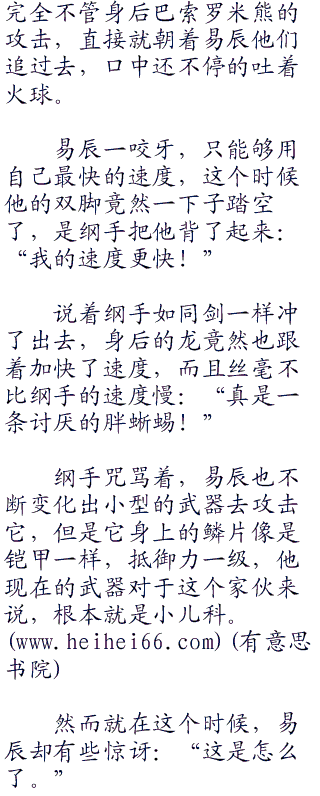 完全不管身后巴索罗米熊的
攻击，直接就朝着易辰他们
追过去，口中还不停的吐着
火球。
易辰一咬牙，只能够用
自己最快的速度，这个时候
他的双脚竟然一下子踏空
了，是纲手把他背了起来：
“我的速度更快！”
说着纲手如同剑一样冲
了出去，身后的龙竟然也跟
着加快了速度，而且丝毫不
比纲手的速度慢：“真是一
条讨厌的胖蜥蜴！”
纲手咒骂着，易辰也不
断变化出小型的武器去攻击
它，但是它身上的鳞片像是
铠甲一样，抵御力一级，他
现在的武器对于这个家伙来
说，根本就是小儿科。
(www.heihei66.com)(有意思
书院)
然而就在这个时候，易
辰却有些惊讶：“这是怎么
了。”